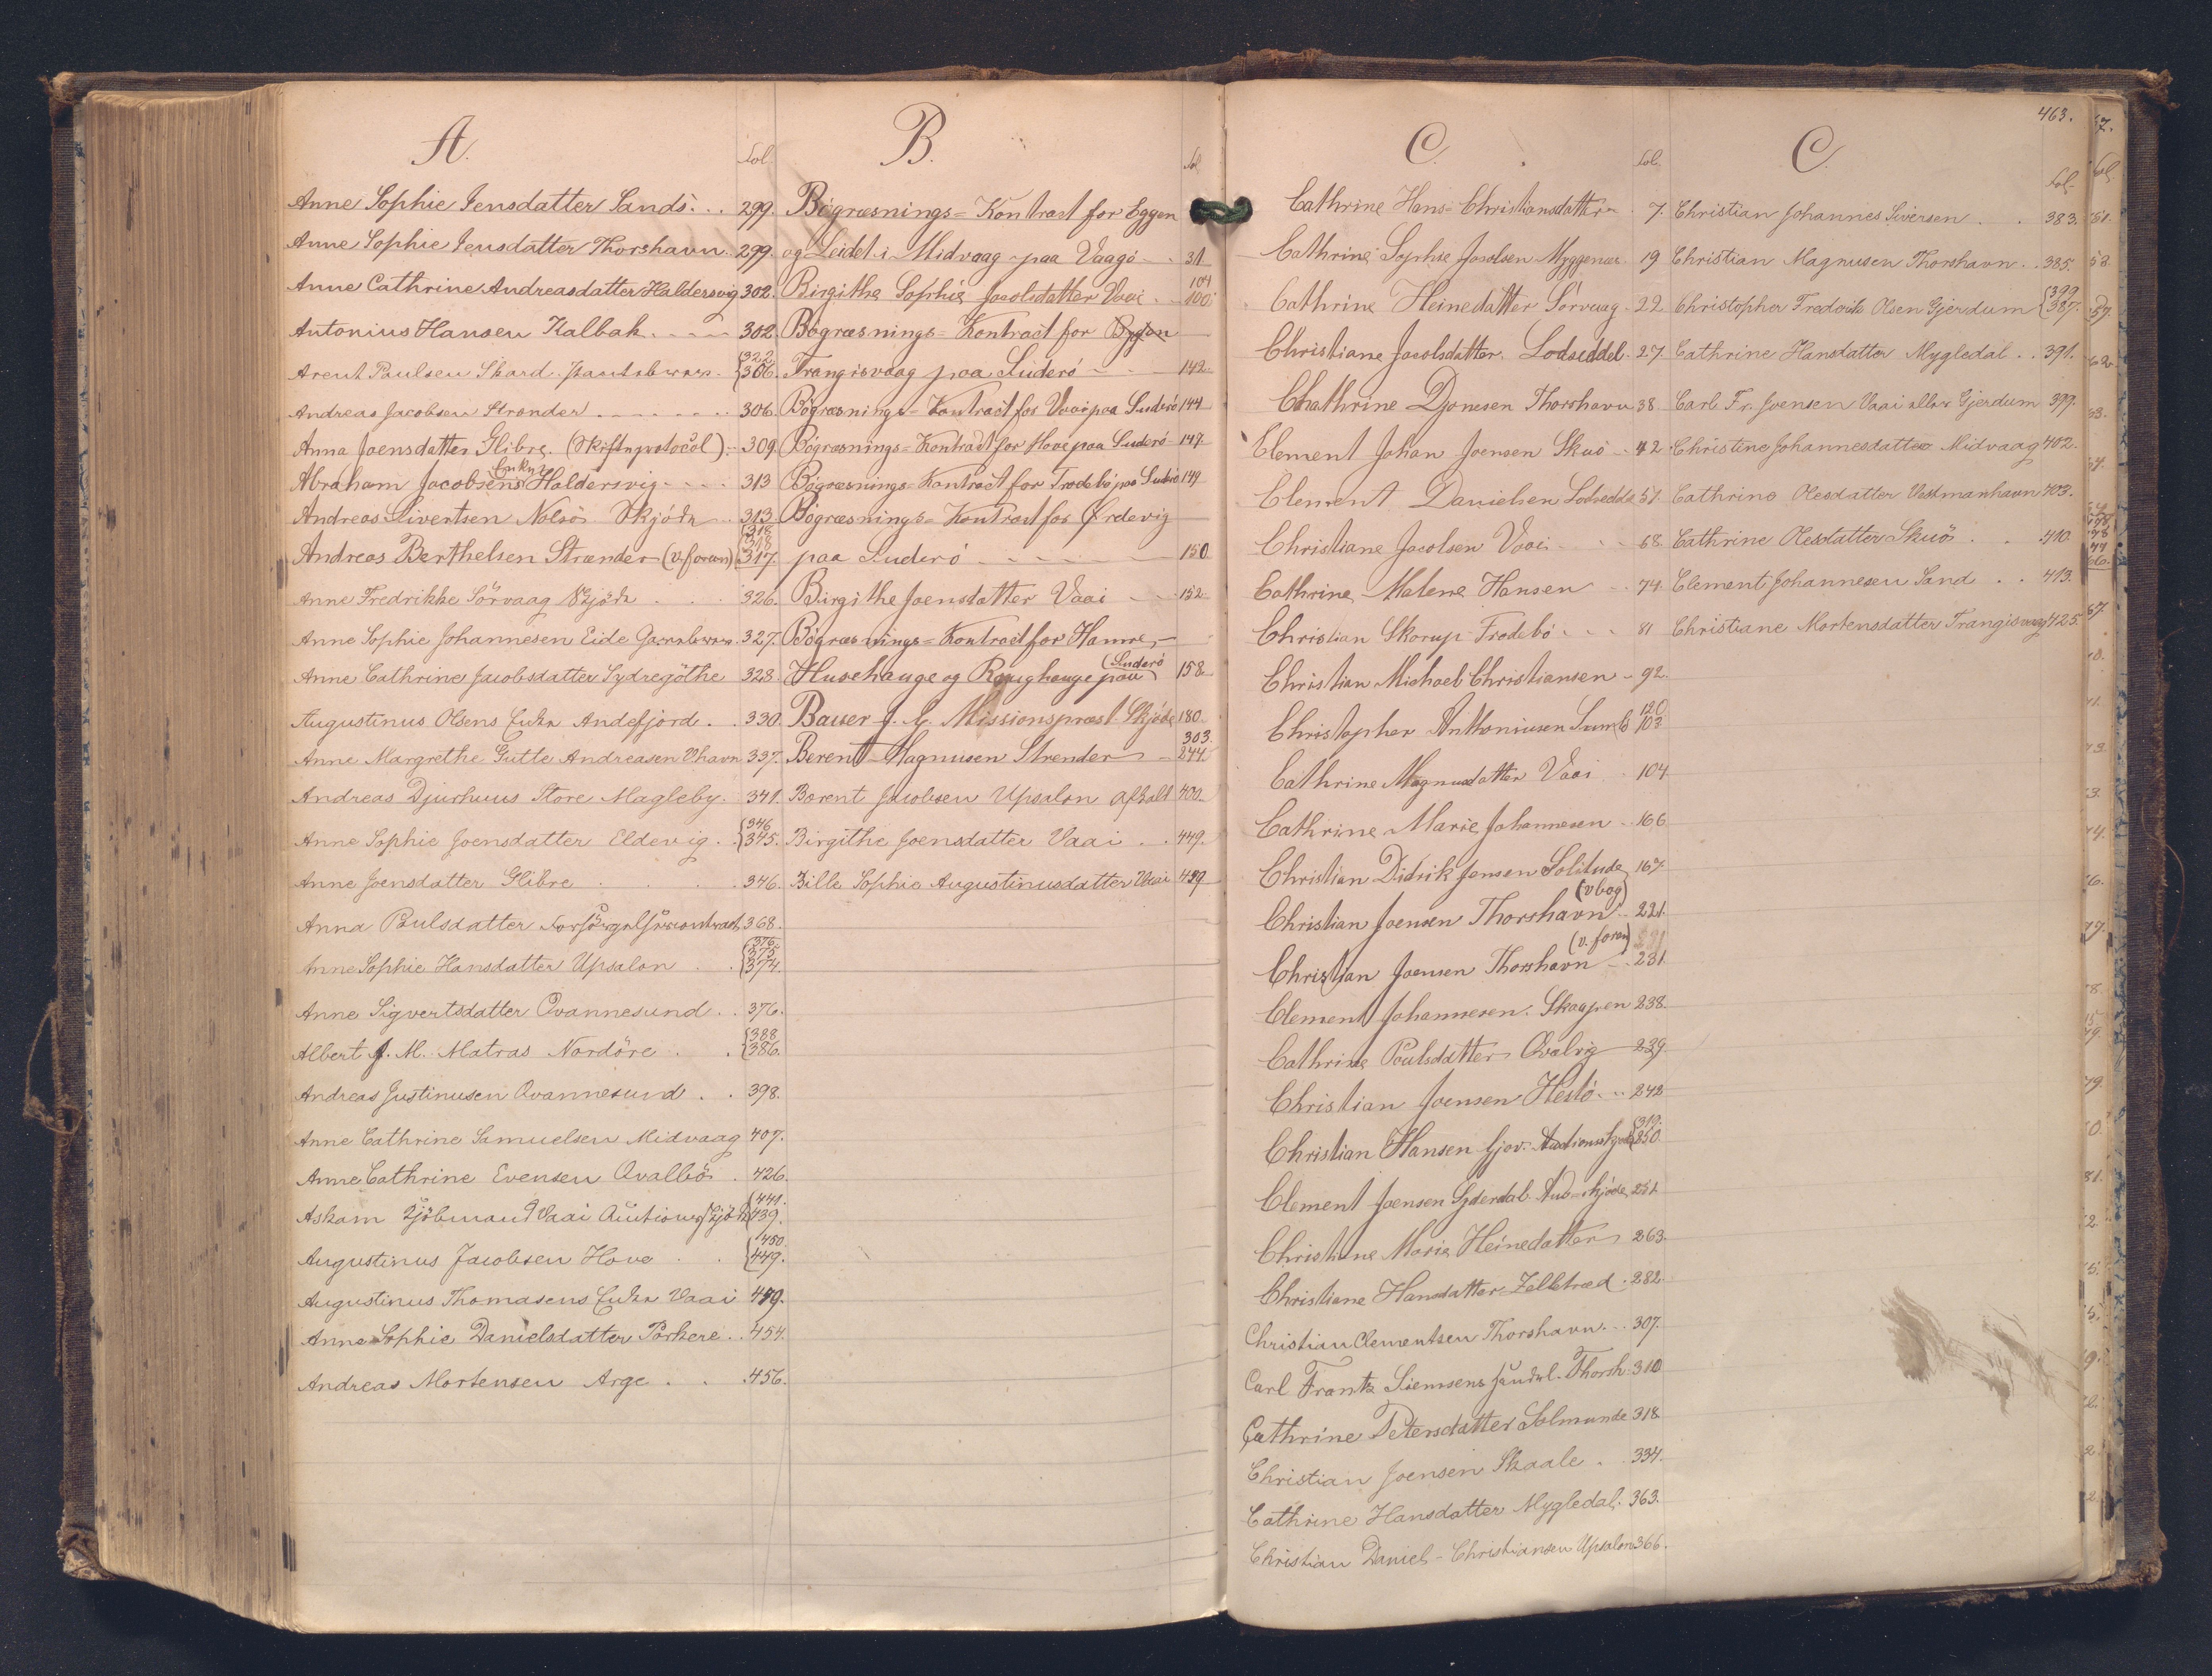 A.
Fol.
Anne Sophie Jensdatter Sands. . . 299.
Anne Sophie Jensdatter Thorshavn. . 299.
Anne Cathrine Andreasdatter Haldersvig 302.
Antonius Hansen Kalbak. - - - - 302.
Arent Paulsen Skard. {322. 306.
Andreas Jacobsen Strender . . . . . . . 306.
Anna Joensdatter Glibre. (Skifteprotocol). 309.
Abraham Jacobsens Enke Haldersvig. - - - 313
Andreas Sivertsen Nolsö Skjöde . . 313.
Andreas Berthelsen Strænder (v. foran) {318. 318. 317.
Anne Fredrikke Sörvaag Skjöde . . . 326.
Anne Sophie Johannesen Eide 327.
Anne Cathrine Jacobsdatter Sydregöthe 328.
Augustinus Olsens Enke Andefjord . . 330.
Anne Margrethe Gutte Andreasen Thavn 337.
Andreas Djurhuus Store Magleby. 341.
Anne Sophie Joensdatter Eldevig. . {346. 345.
Anne Joensdatter Glibre . . . . 346.
Anna Poulsdatter 368.
Anne Sophie Hansdatter Upsalon . . {376. 375. 374.
Anne Sigvertsdatter Qvannesund . . 376.
Albert J. M. Matras Nordöre . . {388 386.
Andreas Justinusen Qvannesund . . 398.
Anne Cathrine Samuelsen Midvaag 407.
Anne Cathrine Evensen Qvalbö . 426.
Askam Kjöbmand Vaai Auctionsskjöde {441. 439.
Augustinus Jacobsen Hove . . {450 449.
Augustinus Thomasens Enke Vaai 449.
Anne Sophie Danielsdatter Porkere . . 454.
Andreas Mortensen Arge . . . 456.
B.
Fol
Bögræsnings = Kontract for Eggen
og Leidet i Midvaag paa Vaagö - . 31
Birgithe Sophie Jacobsdatter Vaai . - 104 100
Bögræsnings = Kontract for Bygen
Trangisvaag paa Suderö - - - 142
Bögræsnings = Kontract for Vaai paa Suderö 144
Bögræsnings = Kontract for Hove paa Suderö 147
Bögræsnings = Kontract for Frodebö paa Suderö 149
Bögræsnings = Kontract for Ördevig
paa Suderö - - - - - 150
Birgithe Joensdatter Vaai - - 152
Bögræsnings = Kontract for Hamre,
Husehauge og hauge paa (Suderö 158
Bauer J. G. Missionspræst. Skjöde 180
Berent Magnusen Strender - 303. 244.
Berent Jacobsen Upsalon Afkald 400.
Birgithe Joensdatter Vaai . . 449.
Bille Sophie Augustinusdatter Vaai 449
C.
Fol.
Cathrine Hans = Christiansdatter . 7.
Cathrine Sophie Jacobsen Myggenæs 19
Cathrine Heinedatter Sörvaag . 22
Christiane Jacobsdatter. Lodseddel . 27.
Chathrine Djonesen Thorshavn 38
Clement Johan Joensen Skuö - 42
Clement Danielsen Lodseddel 51.
Christiane Jacobsen Vaai - - - 68.
Cathrine Malene Hansen - - 74.
Christian Skorup Frodebö - - - 81
Christian Michael Christiansen - 92.
Christopher Anthoniusen Sumbö 120. 103.
Cathrine Magnusdatter Vaai . 104.
Cathrine Marie Johannesen - 166
Christian Didrik Jensen Solitude 167.
Christian Joensen Thorshavn (v bog) - 221.
Christian Joensen Thorshavn (v. foran) - 231.
Clement Johannesen. Skaapen 238.
Cathrine Poulsdatter Qvalvig 239.
Christian Joensen Hestö . . . 242
Christian Hansen Gjov. Auctionsskjöde {319. 250.
Clement Joensen Syderdal. Auc = skjöde 251.
Christiane Marie Heinedatter 263.
Christiane Hansdatter Zelletræd . 282.
Christian Clementsen Thorshavn. . . 307.
Carl Frantz Siemsens Thorsh. 310
Cathrine Petersdatter Solmunde 318.
Christian Joensen Skaale . . 334.
Cathrine Hansdatter Mygledal. 363.
Christian Daniel - Christiansen Upsalon 366.
463.
C.
Fol.
Christian Johannes Siversen . . 383.
Christian Magnusen Thorshavn . . 385.
Christopher Fredrik Olsen Gjerdum {399 387.
Cathrine Hansdatter Mygledal . . 391.
Carl Fr. Joensen Vaai eller Gjerdum 399.
Christine Johannesdatter Midvaag 402.
Cathrine Olesdatter Vestmanhavn 403.
Cathrine Olesdatter Skuö . . 410.
Clement Johannesen Sand . . 413.
Christiane Mortensdatter Trangisvaag 425.